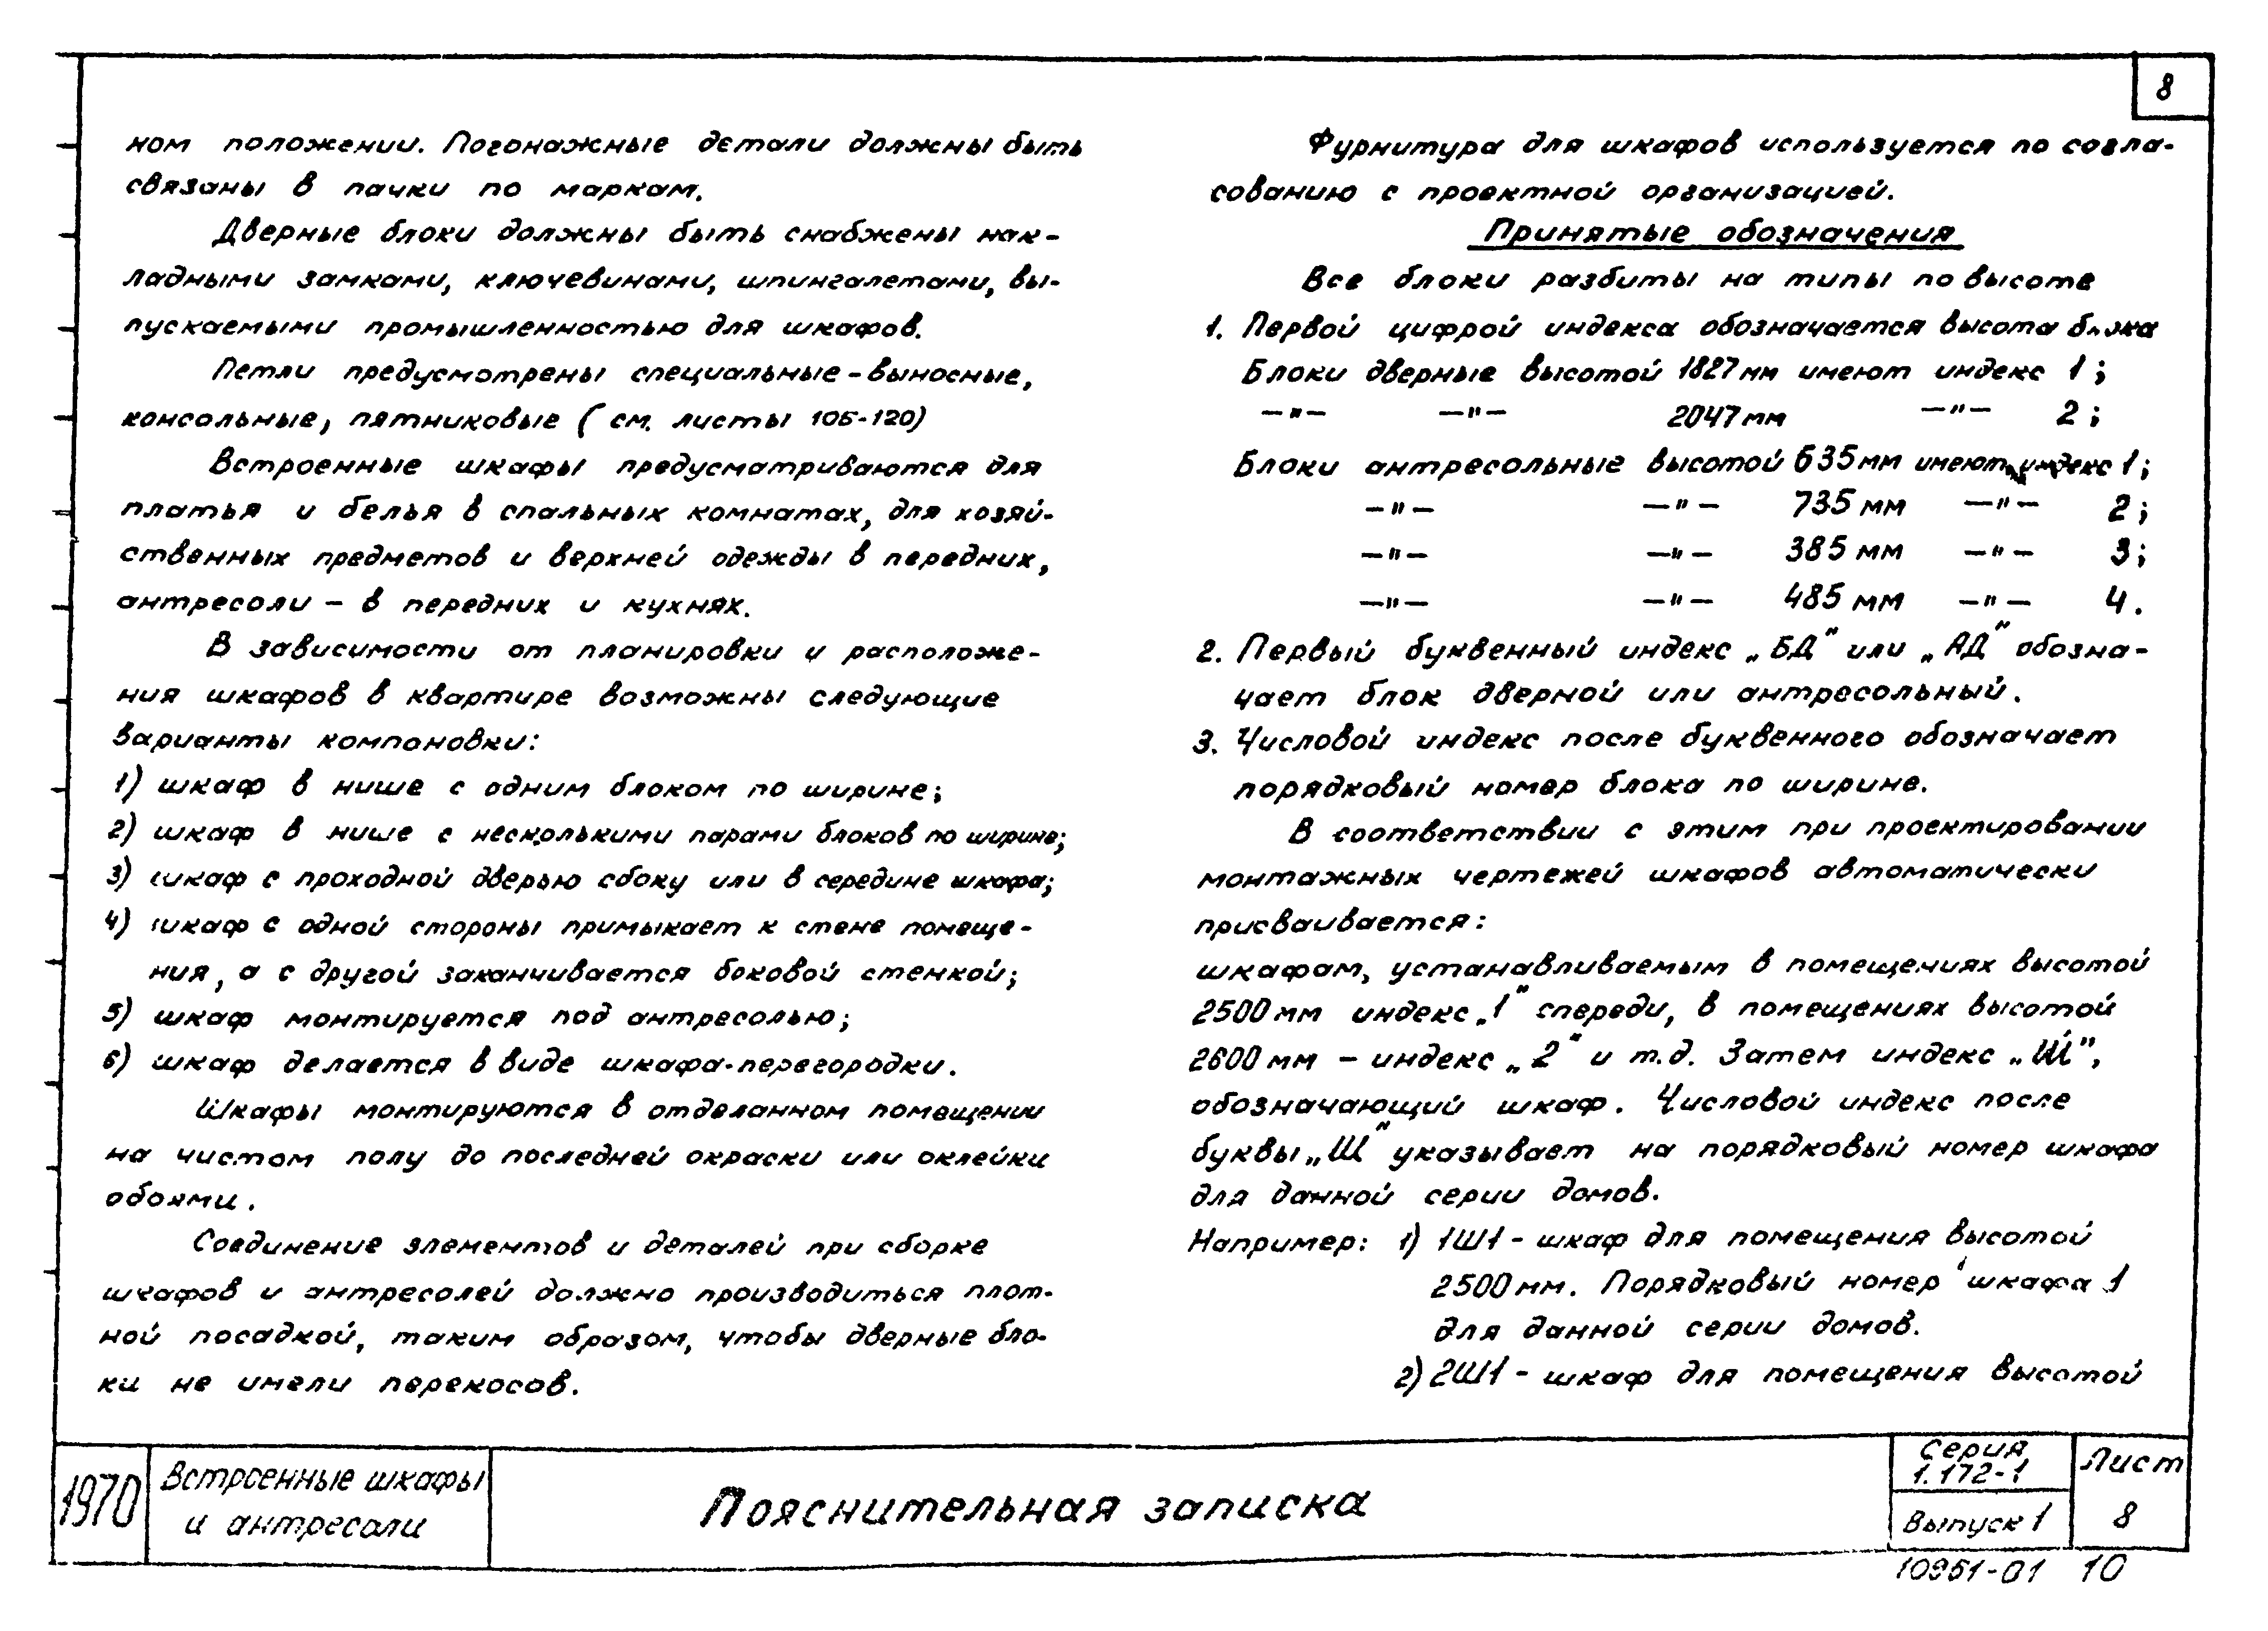 8
ном положении. Погонажные детали должны быть
связаны в пачки по маркам.
Дверные блоки должны быть снабжены нак-
ладными замками, ключевинами, шпингалетами, вы-
пускаемыми промышленностью для шкафов.
Петли предусмотрены специальные - выносные,
консольные, пятниковые ( см. листы 106-120)
Встроенные шкафы предусматриваются для
платья и белья в спальных комнатах, для хозяй-
ственных предметов и верхней одежды в передних,
антресоли - в передних и кухнях.
В зависимости от планировки и расположе-
ния шкафов в квартире возможны следующие
варианты компоновки:
1) шкаф в нише с одним блоком по ширине;
2) шкаф в нише с несколькими парами блоков по ширине;
3) шкаф с проходной дверью сбоку или в середине шкафа;
4) шкаф с одной стороны примыкает к стене помеще-
ния, а с другой заканчивается боковой стенкой;
5) шкаф монтируется под антресолью;
6) шкаф делается в виде шкафа-перегородки.
Шкафы монтируются в отделанном помещении
на чистом полу до последней окраски или оклейки
обоями.
Соединение элементов и деталей при сборке
шкафов и антресолей должно производиться плот-
ной посадкой, таким образом, чтобы дверные бло-
ки не имели перекосов.
Фурнитура для шкафов используется по согла-
сованию с проектной организацией.
Принятые обозначения
Все блоки разбиты на типы по высоте
1. Первой цифрой индекса обозначается высота блока
Блоки дверные высотой 1827 мм имеют индекс 1;
-"- -"- 2047 мм -"- 2;
Блоки антресольные высотой 635 мм имеют индекс 1;
-"- -"- 735 мм -"- 2;
-"- -"- 385 мм -"- 3;
-"- -"- 485 мм -"- 4.
2. Первый буквенный индекс „БД" или „АД" обозна-
чает блок дверной или антресольный.
3. Числовой индекс после буквенного обозначает
порядковый номер блока по ширине.
В соответствии с этим при проектировании
монтажных чертежей шкафов автоматически
присваивается:
шкафам, устанавливаемым в помещениях высотой
2500 мм индекс „1" спереди, в помещениях высотой
2600 мм - индекс „2" и т.д. Затем индекс „Ш",
обозначающий шкаф. Числовой индекс после
буквы „Ш" указывает на порядковый номер шкафа
для данной серии домов.
Например: 1) 1Ш1 - шкаф для помещения высотой
2500 мм. Порядковый номер шкафа 1
для данной серии домов.
2) 2Ш1 - шкаф для помещения высотой
1970
Встроенные шкафы
и антресоли
Пояснительная записка
Серия
1.172-1
Выпуск 1
Лист
8
10951-01 10